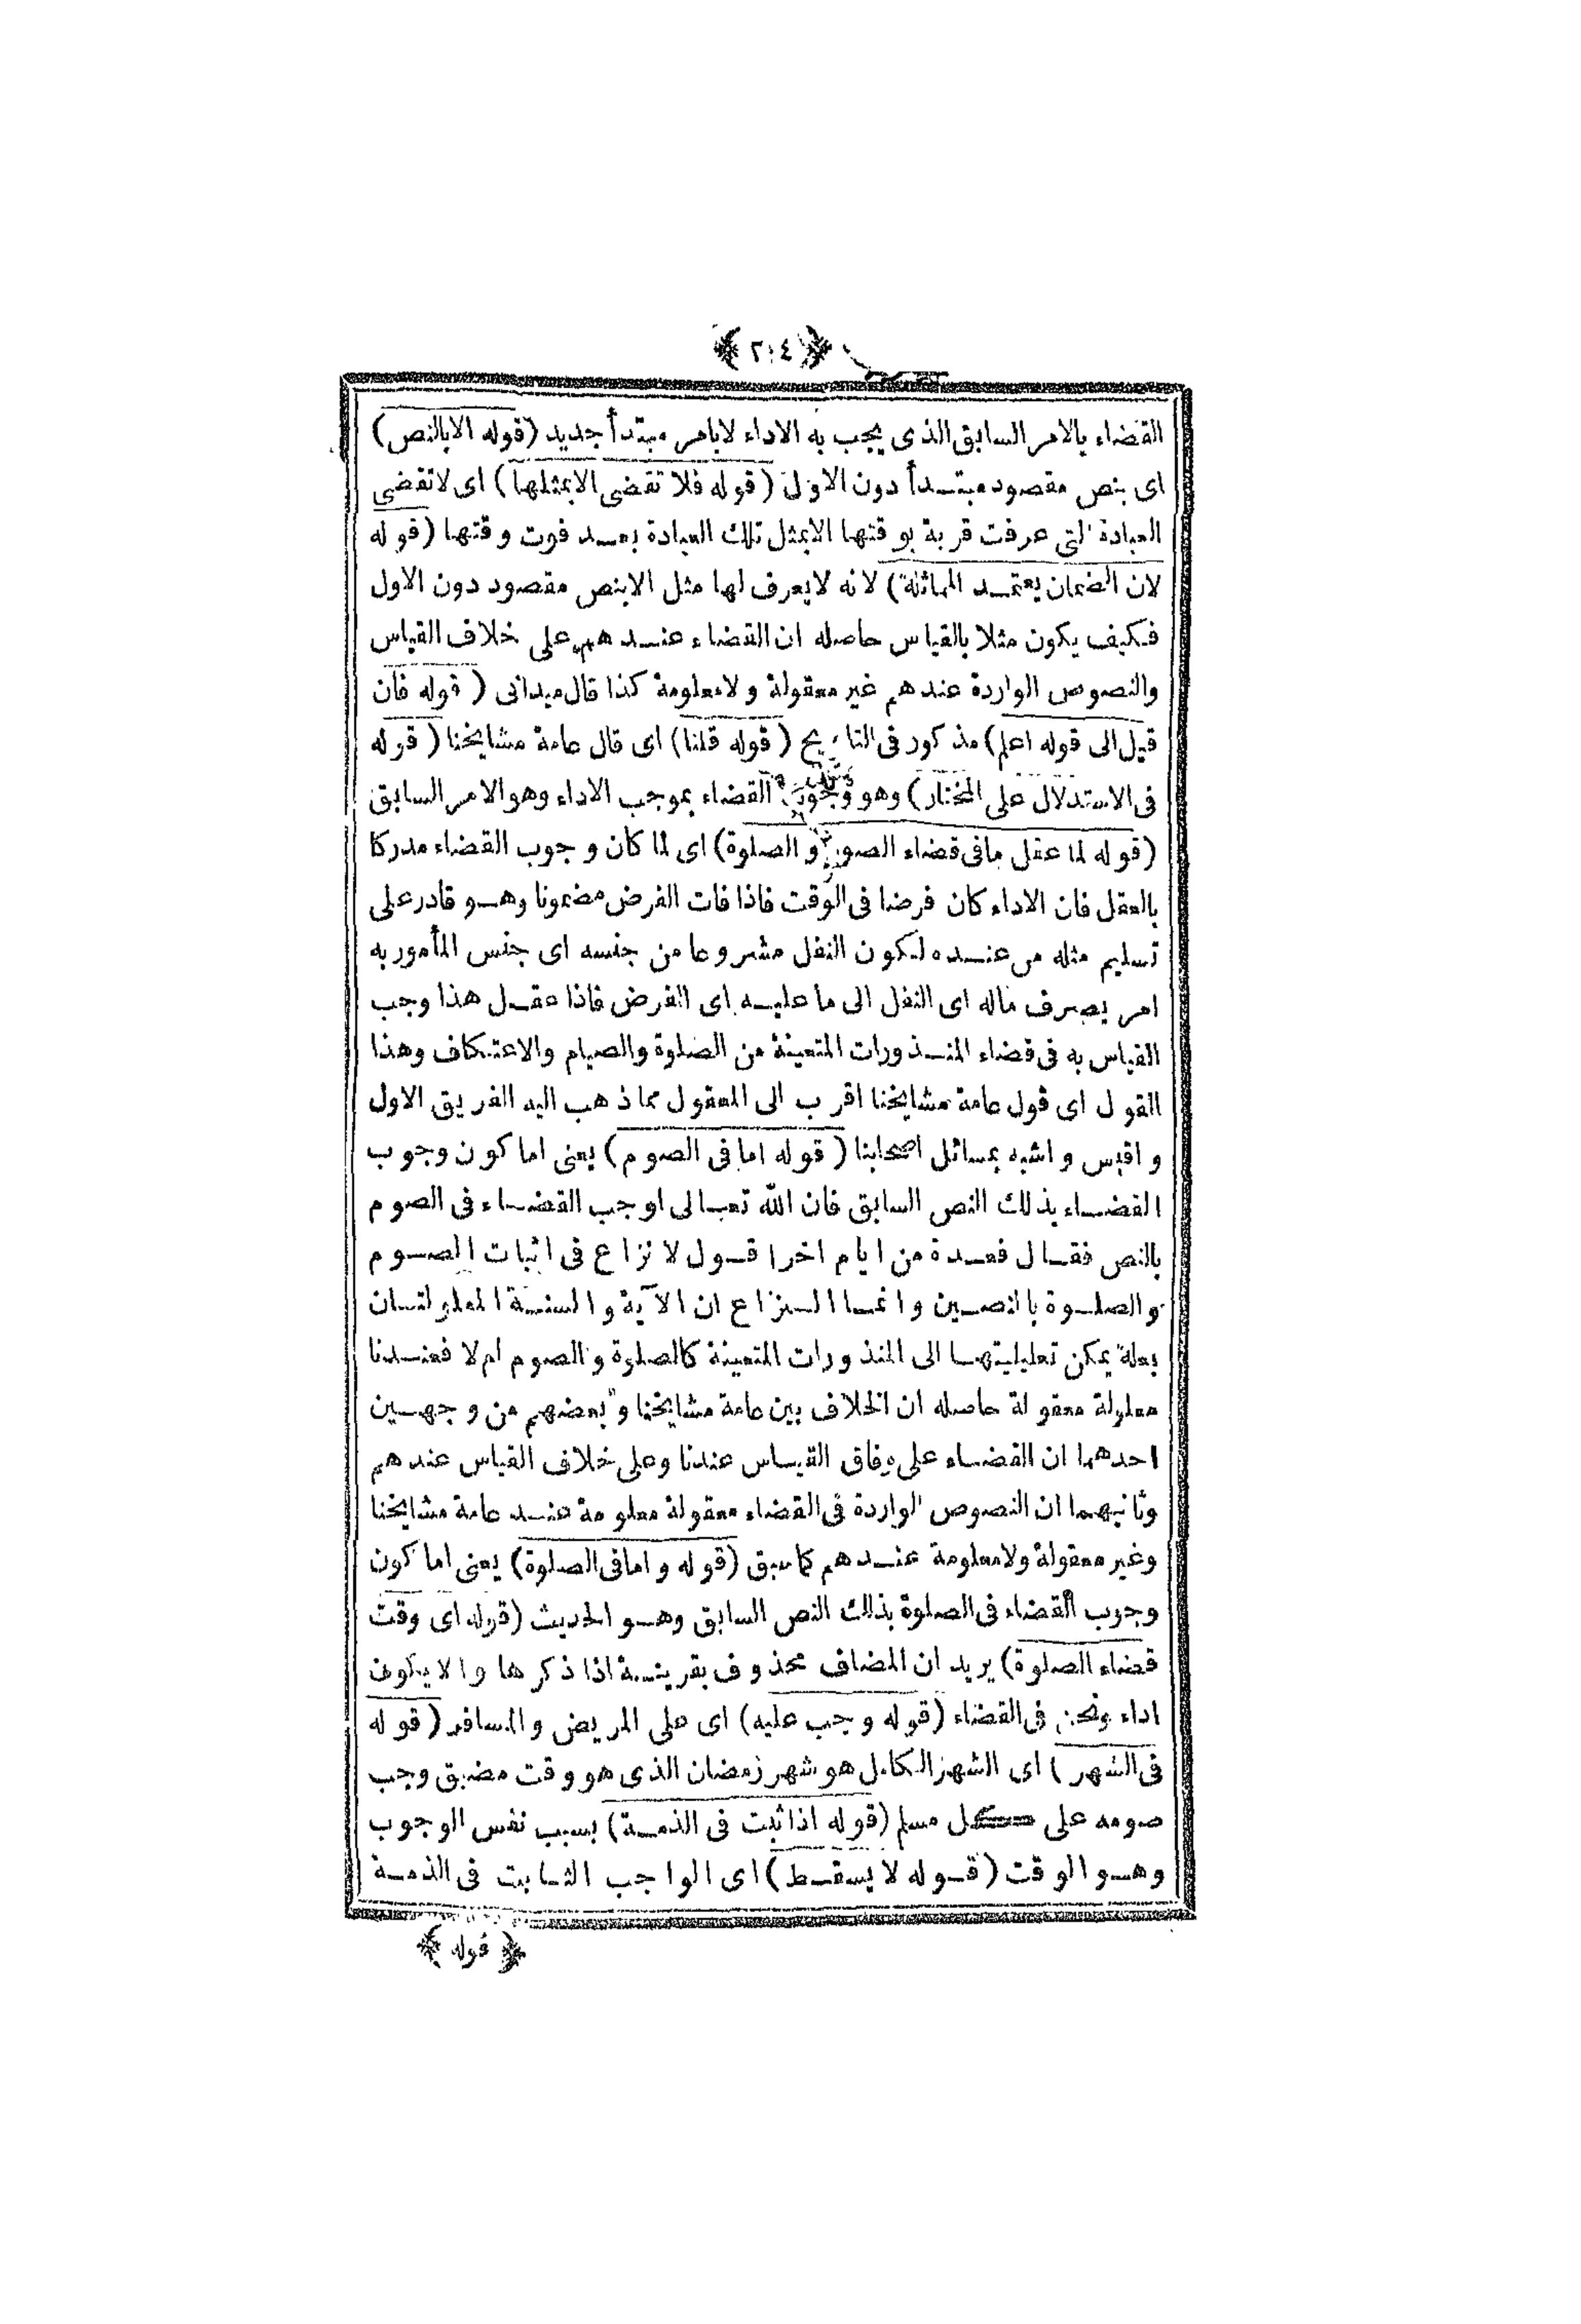 ﴿ ٢٠٤ ﴾
القضاء بالامر السابق الذى يجب به الاداء لابامر مبتدأ جديد (قوله الابالنص)
اى بنص مقصود مبتدأ دون الاول (قوله فلا تقضى الابمثلها) اى لاتقضى
العبادة التى عرفت قربة بوقتها الابمثل تلك العبادة بعد فوت وقتها (قوله
لان الضمان يعتمد المماثلة) لانه لايعرف لها مثل الابنص مقصود دون الاول
فكيف يكون مثلا بالقياس حاصله ان القضاء عندهم على خلاف القياس
والنصوص الواردة عندهم غير معقولة ولامعلومة كذا قال ميدانى (قوله فان
قيل الى قوله اعلم) مذكور فى التلويح (قوله قلنا) اى قال عامة مشايخنا (قوله
فى الاستدلال على المختار) وهو وجوب القضاء بموجب الاداء وهو الامر السابق
(قوله لما عقل مافى قضاء الصوم والصلوة) اى لما كان وجوب القضاء مدركا
بالعقل فان الاداء كان فرضا فى الوقت فاذا فات الفرض مضمونا وهو قادر على
تسليم مثله من عنده لكون النفل مشروعا من جنسه اى جنس المأمور به
امر بصرف ماله اى النفل الى ما عليه اى الفرض فاذا عقل هذا وجب
القياس به فى قضاء المنذورات المتعينة من الصلوة والصيام والاعتكاف وهذا
القول اى قول عامة مشايخنا اقرب الى المعقول مما ذهب اليه الفريق الاول
واقيس واشبه بمسائل اصحابنا (قوله اما فى الصوم) يعنى اما كون وجوب
القضاء بذلك النص السابق فان الله تعالى اوجب القضاء فى الصوم
بالنص فقال فعدة من ايام اخر اقول لا نزاع فى اثبات الصوم
والصلوة بالنصين وانما النزاع ان الآية والسنة المعلولتان
بعلة يمكن تعليليتهما الى المنذورات المتعينة كالصلوة والصوم ام لا فعندنا
معلولة معقولة حاصله ان الخلاف بين عامة مشايخنا وبعضهم من وجهين
احدهما ان القضاء على وفاق القياس عندنا وعلى خلاف القياس عندهم
وثانيهما ان النصوص الواردة فى القضاء معقولة معلومة عند عامة مشايخنا
وغير معقولة ولامعلومة عندهم كما سبق (قوله واما فى الصلوة) يعنى اما كون
وجوب القضاء فى الصلوة بذلك النص السابق وهو الحديث (قوله اى وقت
قضاء الصلوة) يريد ان المضاف محذوف بقرينة اذا ذكرها والا يكون
اداء ونحن فى القضاء (قوله وجب عليه) اى على المريض والمسافر (قوله
فى الشهر) اى الشهر الكامل هو شهر رمضان الذى هو وقت مضيق وجب
صومه على كل مسلم (قوله اذا ثبت فى الذمة) بسبب نفس الوجوب
وهو الوقت (قوله لا يسقط) اى الواجب الثابت فى الذمة
﴿ قوله ﴾